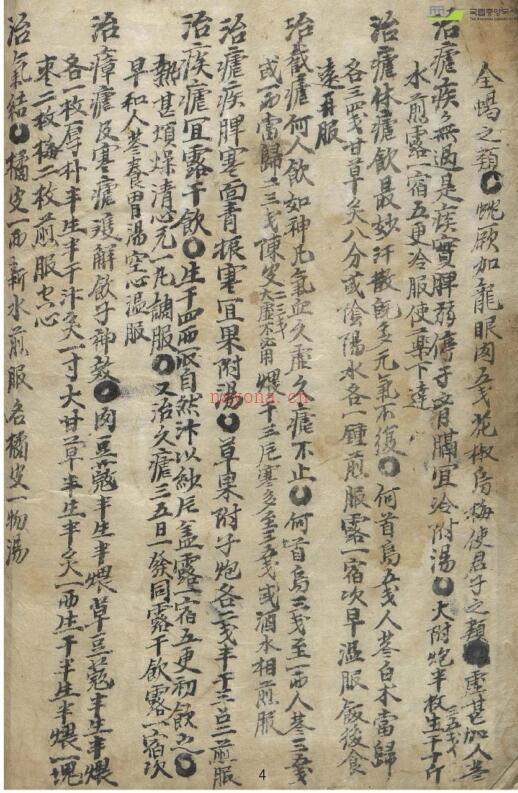 全蝎之類 ○ 惋厥加龍眼肉五戔花椒烏梅使君子之類 ○ 虛甚加人參
治瘧疾無過是疾實脾弱停于膏膈宜冷附湯 ○ 大附炮半枚生干斤三五戔
水煎露一宿五更冷服使藥下達
治瘧休瘧飲最妙汗散既多元氣不復 ○ 何首烏五戔人參白朮當歸
各三四戔甘草炙八分或陰陽水各一鍾煎服露一宿次早溫服飯後食
遠再服
治截瘧何人飲如神凡氣血久虛久瘧不止 ○ 何首烏三戔至一兩人參三五戔
或一兩當歸二三戔陳皮二三戔大虛不必用煨干三片寒多至三五戔或酒水相煎服
治瘧疾脾寒面青振寒宜果附湯 ○ 草果附子炮各二戔半干三召二煎服
治痎瘧宜露干飲 ○ 生干四兩取自然汁以紗片盖露一宿五更初飲之 ○
熱甚煩燥清心元一凡調服 ○ 又治久瘧三五日一發同露干飲露一宿次
早和人參養胃湯空心溫服
治瘴瘧及寒瘧 ○ 肉豆蔻半生半煨草豆蔻半生半煨
各一枚厚朴半生半干汁炙一寸大甘草半生半炙一兩生干半生半煨一塊
枣二枚梅二枚煎服空心
治氣結 ○ 橘皮一兩新水煎服名橘皮一物湯
4
國立中央圖書館
nayona.cn